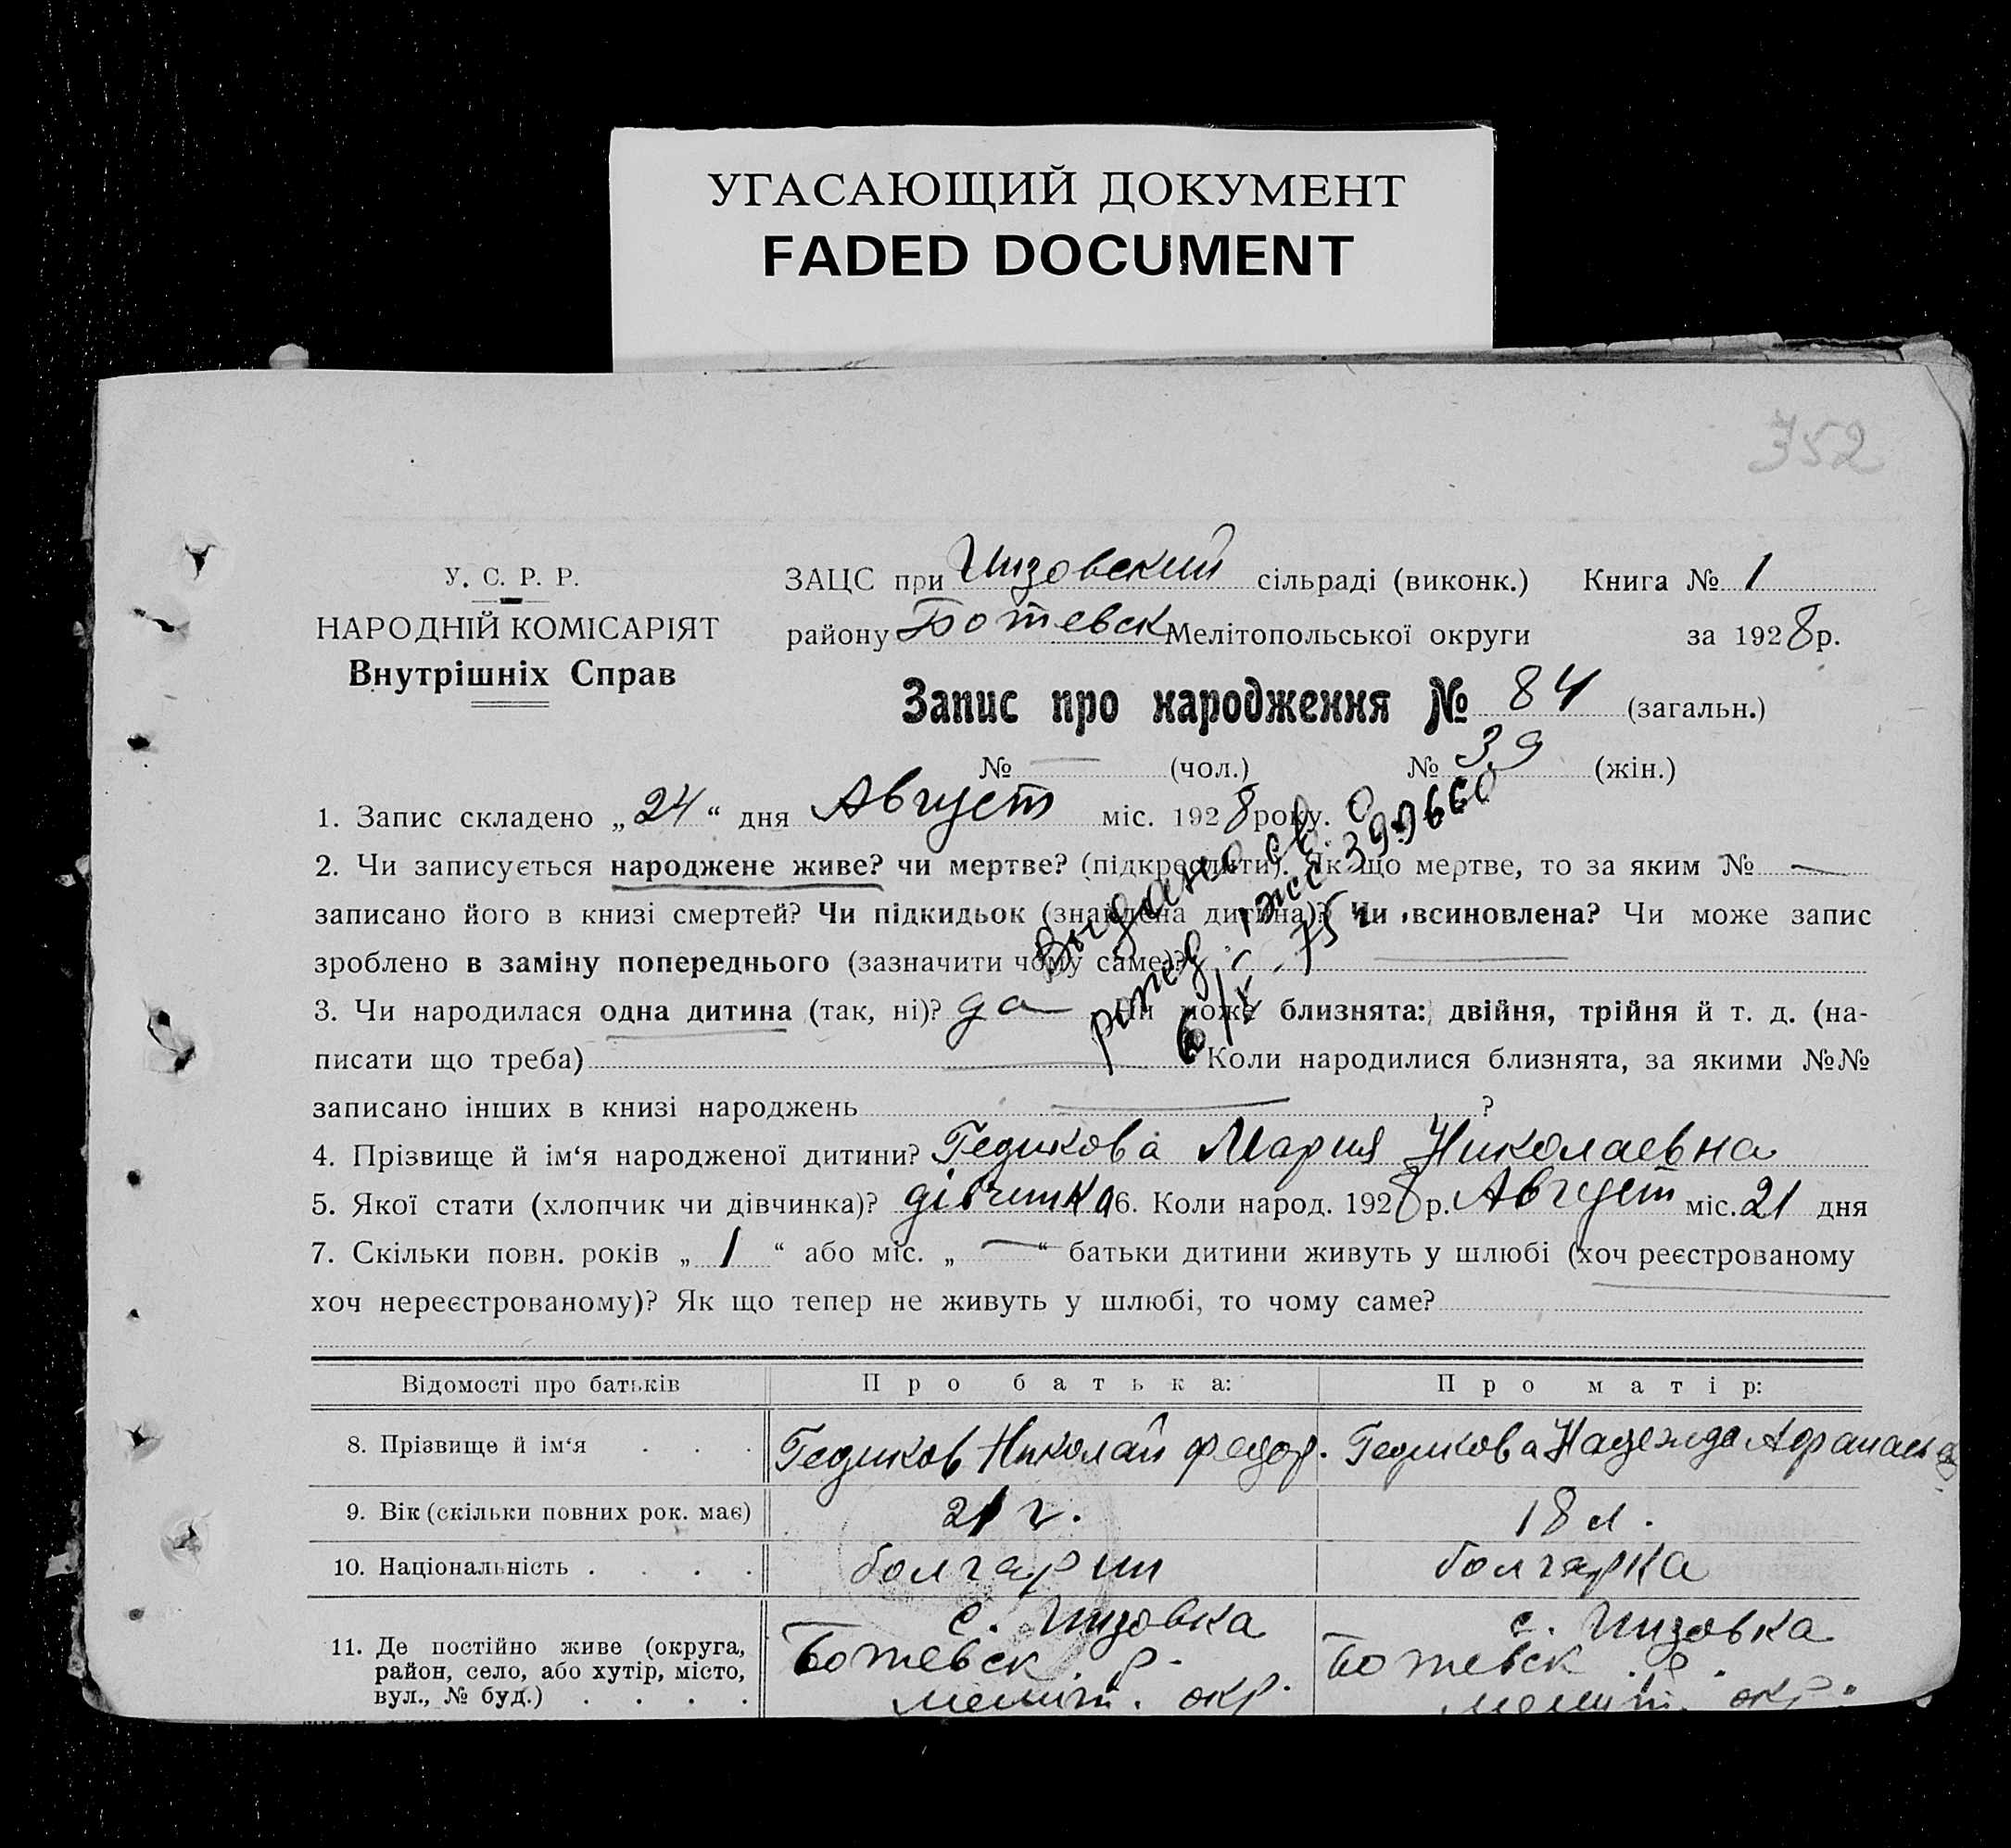 УГАСАЮЩИЙ ДОКУМЕНТ
FADED DOCUMENT
352
У. С. Р. Р.
НАРОДНІЙ КОМІСАРІЯТ
Внутрішніх Справ
ЗАЦС при Гизовский сільраді (виконк.) Книга № 1
району Ботевск Мелітопольської округи за 1928 р.
Запис про народження № 84 (загальн.)
№ — (чол.) № 39 (жін.)
1. Запис складено „24“ дня Август міс. 1928 року.
2. Чи записується народжене живе? чи мертве? (підкреслити). Як що мертве, то за яким № —
записано його в книзі смертей? Чи підкидьок (знайдена дитина)? Чи всиновлена? Чи може запис
зроблено в заміну попереднього (зазначити чому саме)? —
Выдано св. о
рожд. 399660
6/X-75
3. Чи народилася одна дитина (так, ні)? да Чи може близнята: двійня, трійня й т. д. (на-
писати що треба) — Коли народилися близнята, за якими №№
записано інших в книзі народжень — ?
4. Прізвище й ім‘я народженої дитини? Гедикова Мария Николаевна
5. Якої стати (хлопчик чи дівчинка)? дівчинка 6. Коли народ. 1928 р. Август міс. 21 дня
7. Скільки повн. років „1“ або міс. „—“ батьки дитини живуть у шлюбі (хоч реєстрованому
хоч нереєстрованому)? Як що тепер не живуть у шлюбі, то чому саме?
Відомості про батьків Про батька: Про матір:
8. Прізвище й ім‘я . . . Гедиков Николай Федор. Гедикова Надежда Афанасьев
9. Вік (скільки повних рок. має) 21 г. 18 л.
10. Національність . . . . болгарин болгарка
11. Де постійно живе (округа,
район, село, або хутір, місто,
вул., № буд.) . . . .
с. Гизовка
Ботевск. р.
мелит. окр.
с. Гизовка
Ботевск. р.
мелит. окр.